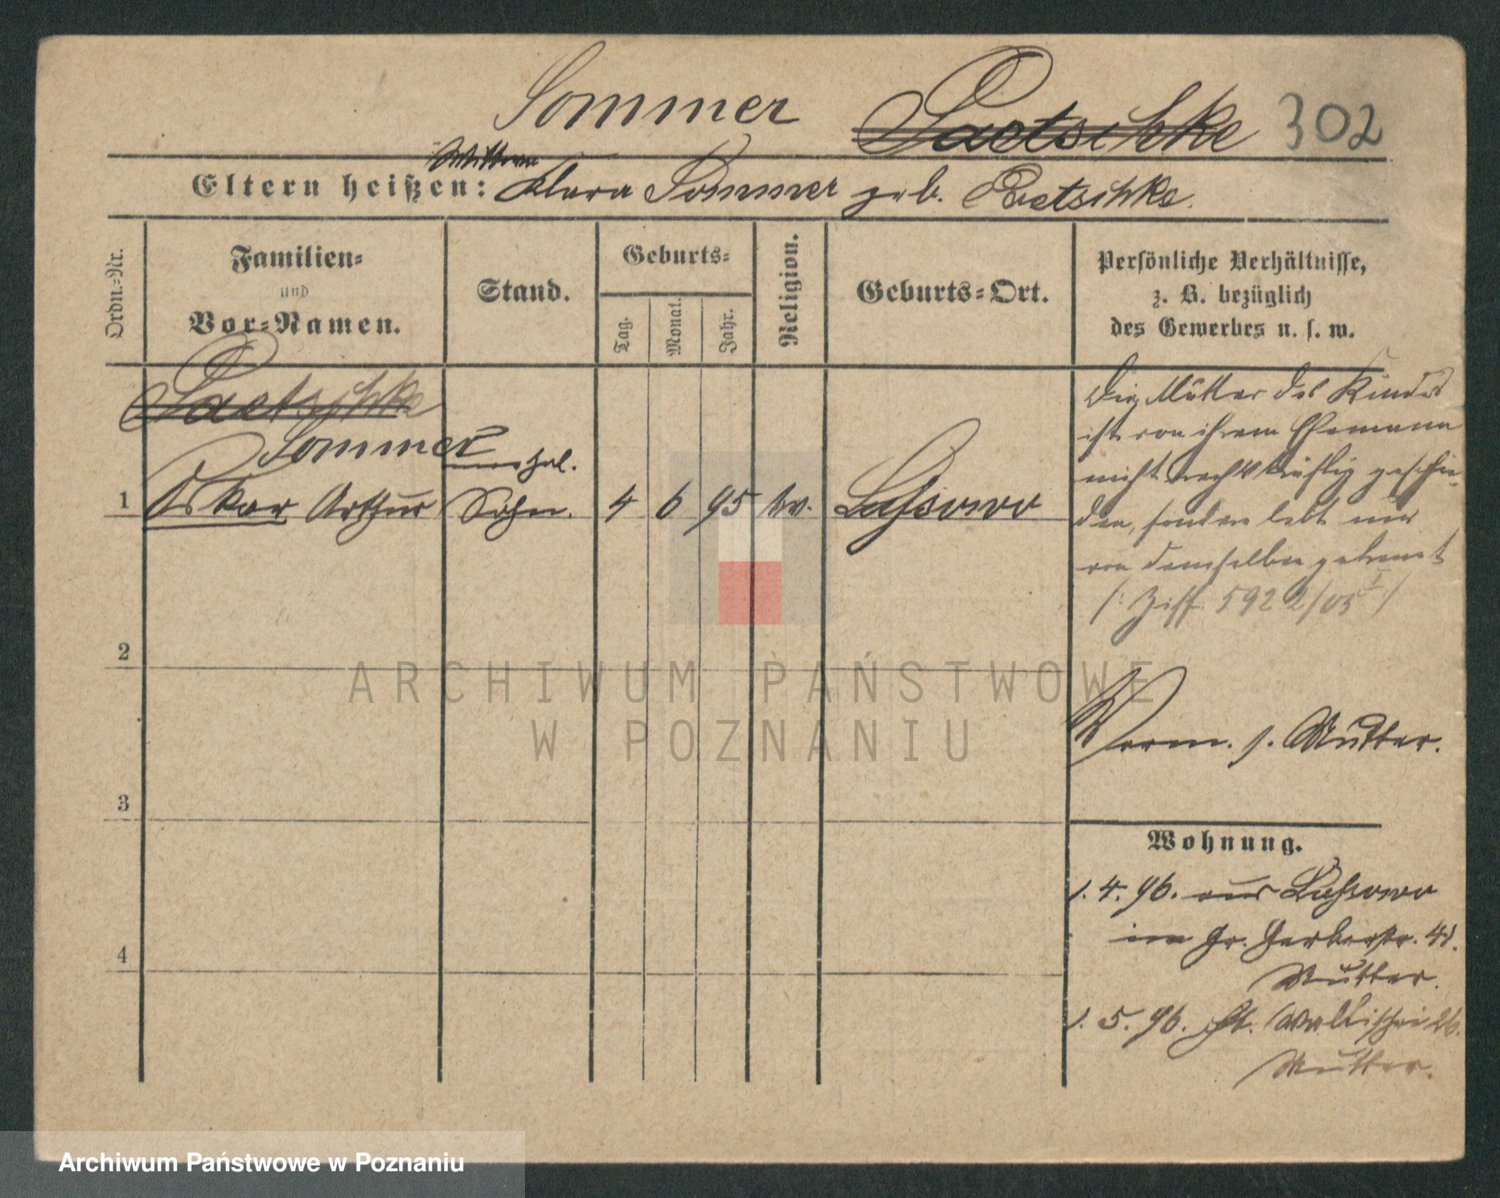 Sommer Paetschke 302
Wittwe
Eltern heißen: Klara Sommer geb. Paetschke.
Ordn.-Nr.
Familien-
und
Vor-Namen.
Stand.
Geburts-
Tag.
Monat.
Jahr.
Religion.
Geburts-Ort.
Persönliche Verhältnisse,
z. B. bezüglich
des Gewerbes u. s. w.
Paetschke
Sommer
1 Oskar Arthur Sohn. 4 6 95 ev. Lussowo
Die Mutter des Kindes
ist von ihrem Ehemann
nicht rechtskräftig geschie-
den, sondern lebt nur
von demselben getrennt
/: Ziff. 5922/05 I /
2
Verm. s. Mutter.
3
Wohnung.
1. 4. 96. aus Lussowo
in Gr. Gerberstr. 41.
Mutter.
4
1. 5. 96. Wallischei 26.
Mutter.
ARCHIWUM PAŃSTWOWE
W POZNANIU
Archiwum Państwowe w Poznaniu